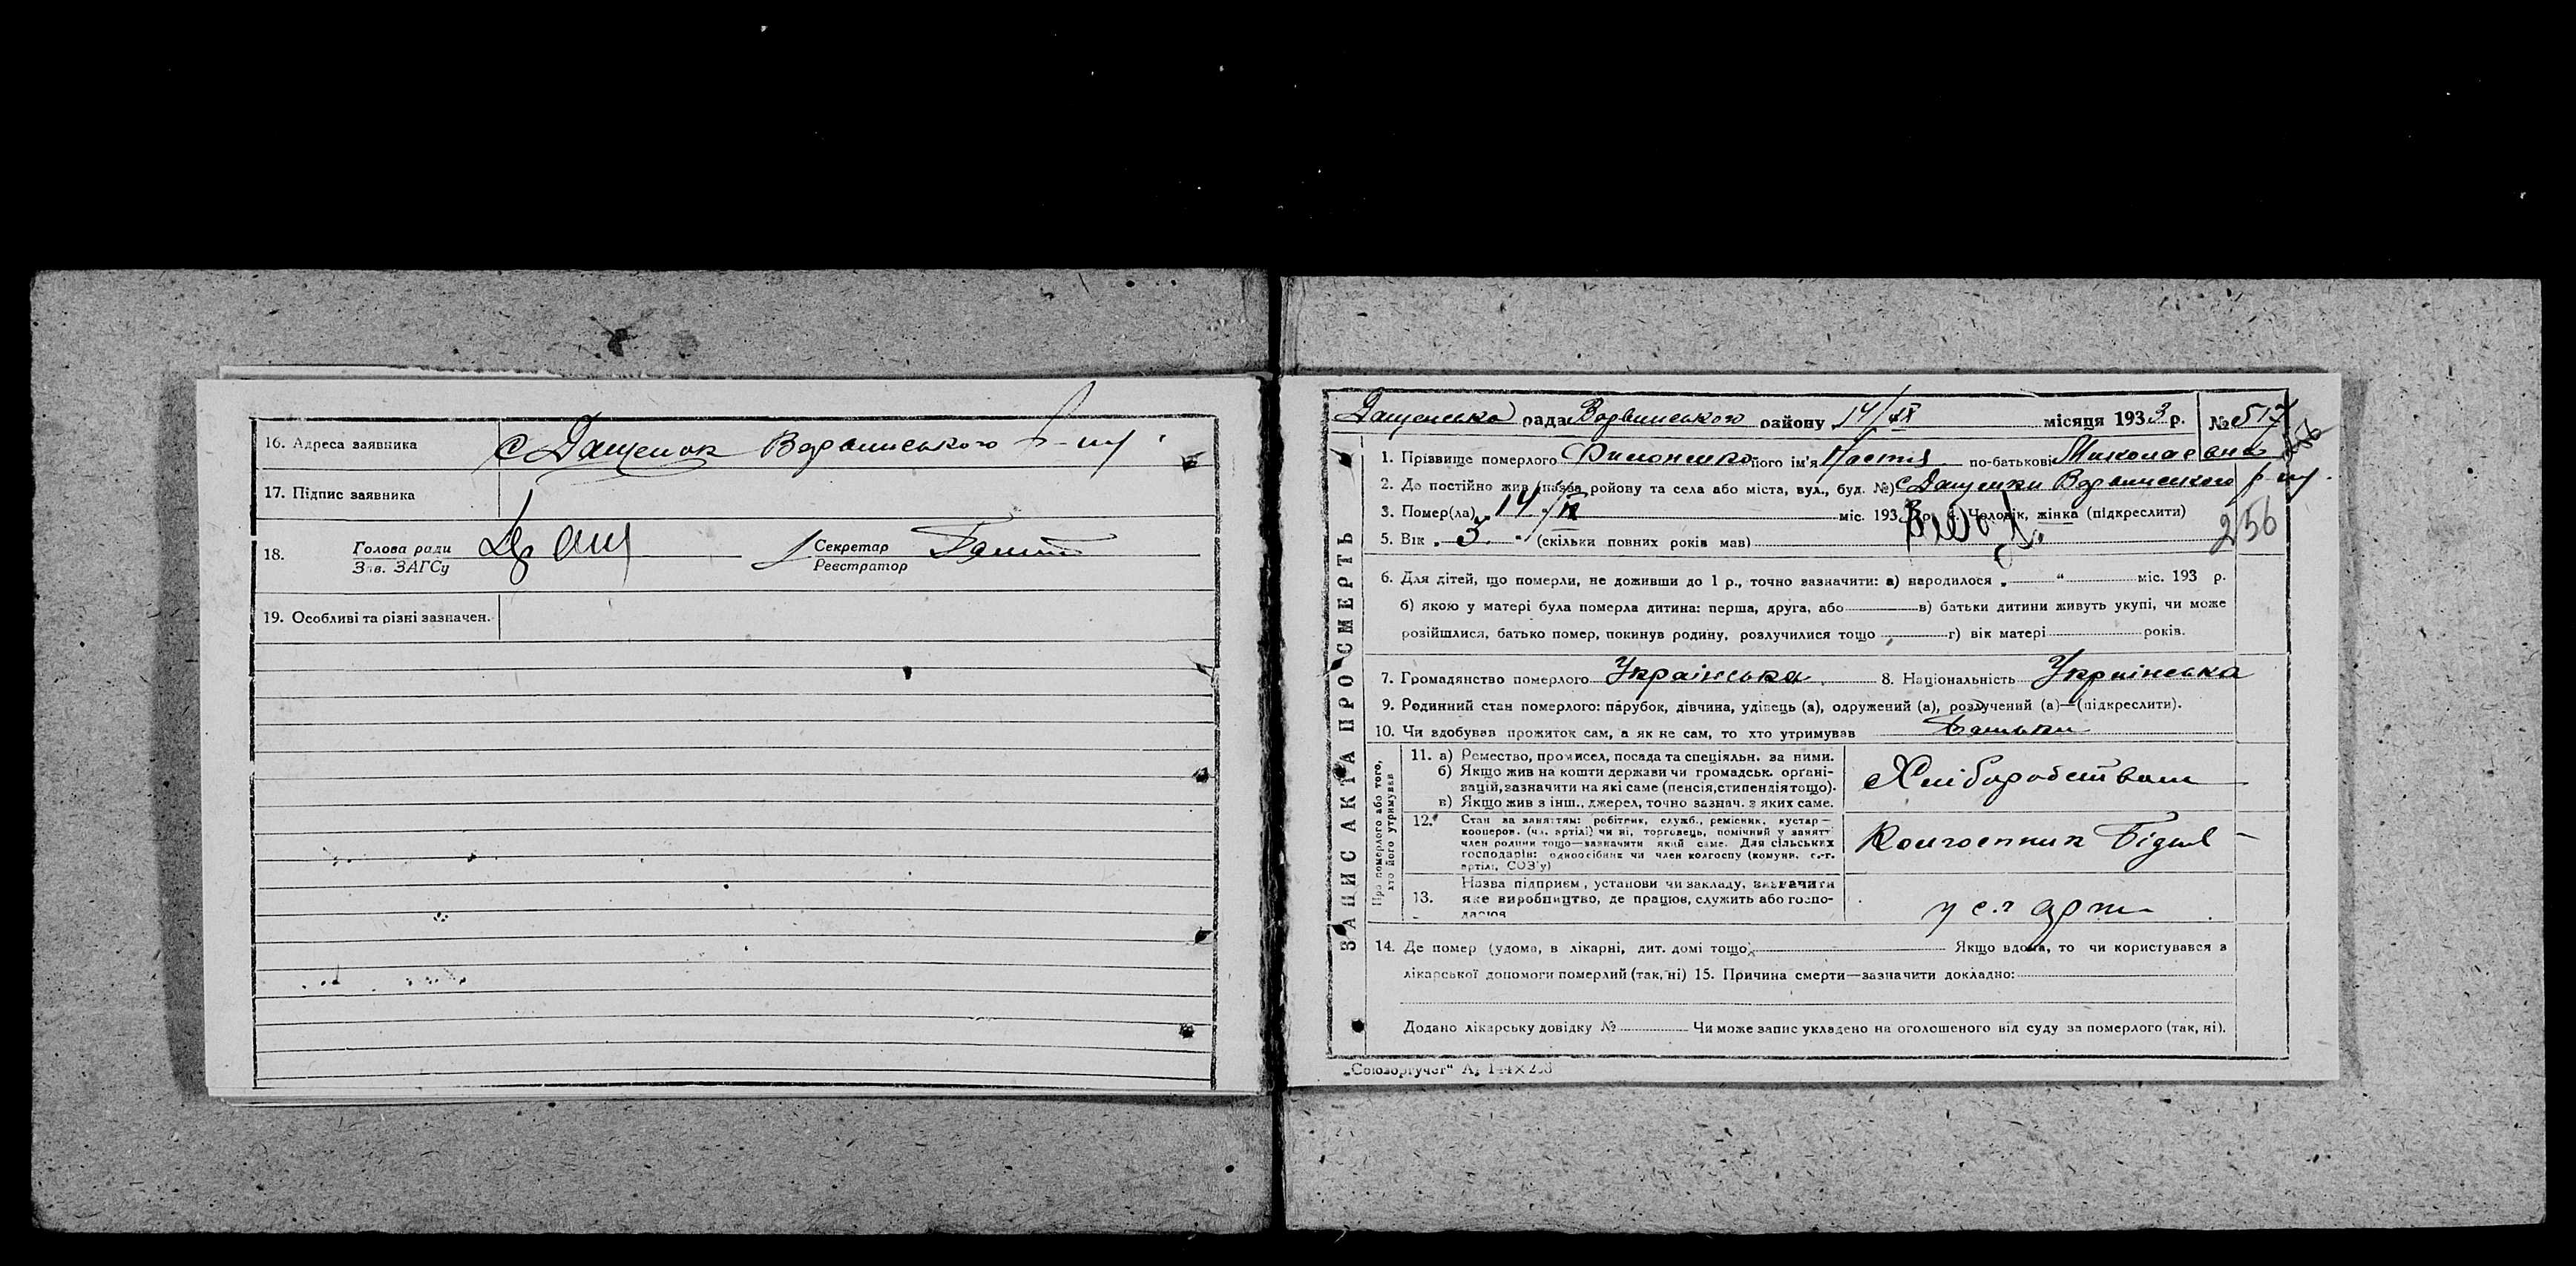 16. Адреса заявника С Дащенок Варвинського р-ну
17. Підпис заявника
18. Голова ради Зав. ЗАГСу Секретар Реєстратор
19. Особливі та різні зазначен.
ЗАПИС АКТА ПРО СМЕРТЬ
Дащенська рада Варвинського району 14/IX місяця 1933 р. № 517
1. Прізвище померлого його ім'я Настя по-батькові Миколаєвна
2. Де постійно жив (назва ройону та села або міста, вул., буд. №) с Дащенки Варвинського р-ну.
3. Помер(ла) „ 14 / міс. 193 р. 4. Чоловік, жінка (підкреслити)
5. Вік „ 3 " (скільки повних років мав)
256
6. Для дітей, що померли, не доживши до 1 р., точно вазначити: а) народилося „ " міс. 193 р.
б) якою у матері була померла дитина: перша, друга, або в) батьки дитини живуть укупі, чи може
розійшлися, батько помер, покинув родину, розлучилися тощо г) вік матері років.
7. Громадянство померлого Українська 8. Національність Українська
9. Родинний стан померлого: парубок, дівчина, удівець (а), одружений (а), розлучений (а)—(підкреслити).
10. Чи вдобував прожиток сам, а як не сам, то хто утримував Батьки
Про померлого або того, хто його утримував
11. а) Ремество, промисел, посада та спеціяльн. за ними.
б) Якщо жив на кошти держави чи громадськ. орґані-
зацій, зазначити на які саме (пенсія, стипендія тощо).
в) Якщо жив з інш., джерел, точно зазнач. з яких саме.
Хліборобством
12. Стан за заняттям: робітник, служб., ремісник, кустар—
кооперов. (чл. артілі) чи ні, торговець, помічний у занятт
член родини тощо—зазначити який саме. Для сільських
господарів: одноосібник чи член колгоспу (комуни, с.-г.
артілі, СОЗ'у)
Колгоспник Бідняк
13. Назва підприєм, установи чи закладу, зазначити
яке виробництво, де працює, служить або госпо-
дарює
у с.г арт.
14. Де помер (удома, в лікарні, дит. домі тощо) Якщо вдома, то чи користувався з
лікарської допомоги померлий (так, ні) 15. Причина смерти—зазначити докладно:
Додано лікарську довідку № Чи може запис укладено на оголошеного від суду за померлого (так, ні).
„Союзоргучет"